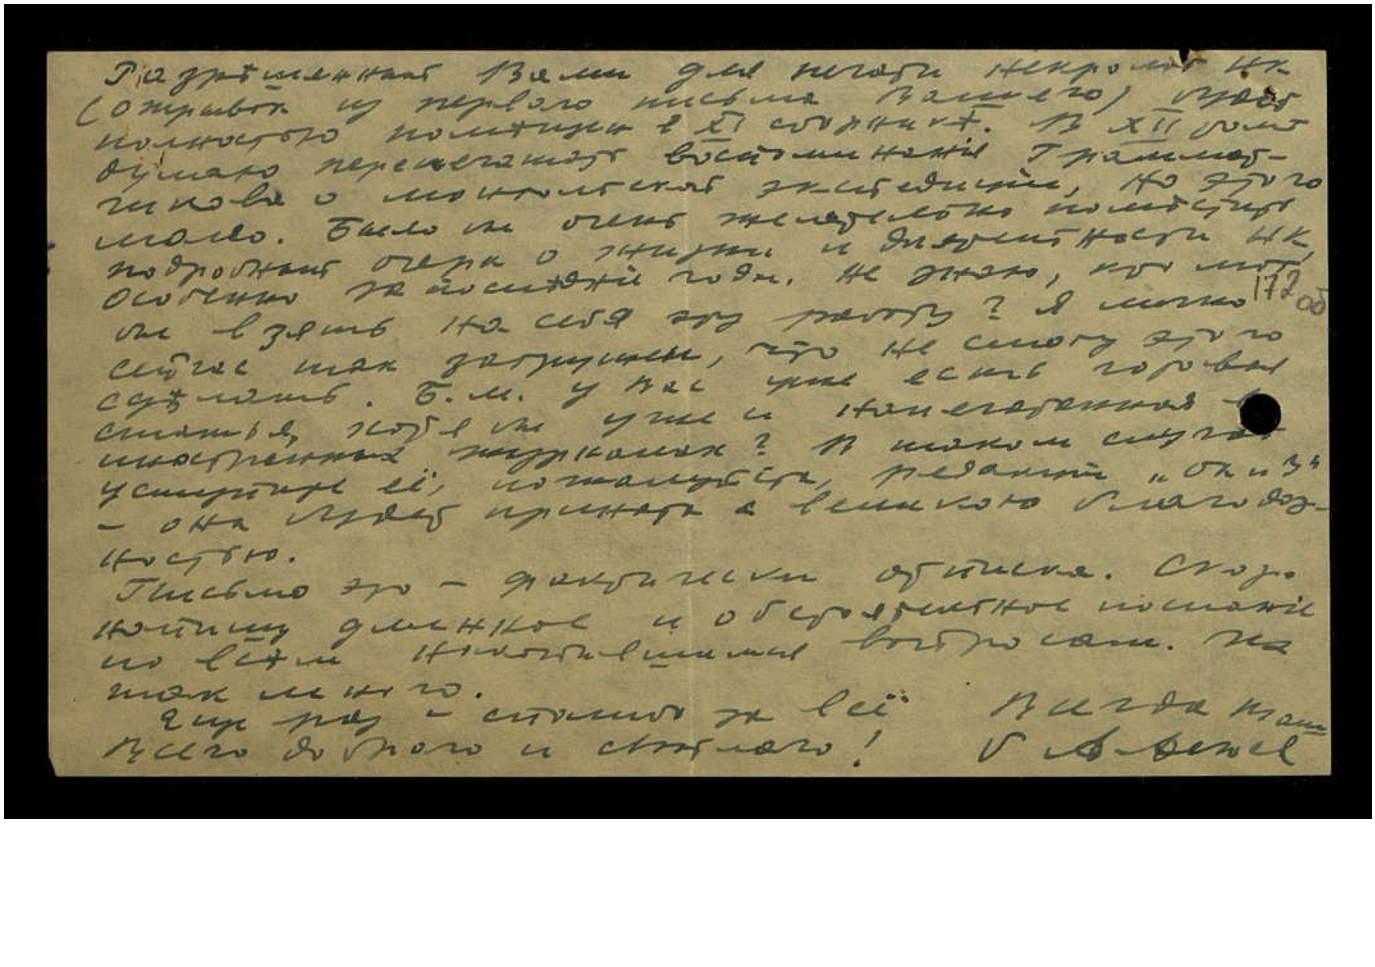 Разрѣшенный Вами для печати некролог НК
(отрывок из первого письма Вашего) будет
полностью помѣщен в XI сборникѣ. В XII томѣ
думаю перепечатать воспоминанія Граммат-
чикова о монгольской экспедиціи, но этого
мало. Было бы очень желательно помѣстить
подробный очерк о жизни и дѣятельности НК,
особенно за послѣдніе годы. Не знаю, кто мог
172 об
бы взять на себя эту работу? Я лично
сейчас так загружен, что не смогу этого
сдѣлать. Б.м. у Вас уже есть готовая
статья, хотя бы уже и напечатанная в
иностранных журналах? В таком случаѣ
уступите её, пожалуйста, редакціи „Ок и З"
– она будет принята с великою благодар-
ностью.
Письмо это – фактически отписка. Скоро
напишу длинное и обстоятельное посланіе
по всѣм накопившимся вопросам. Их
так много.
Еще раз – спасибо за всё Всегда Ваш
Всего доброго и свѣтлаго!